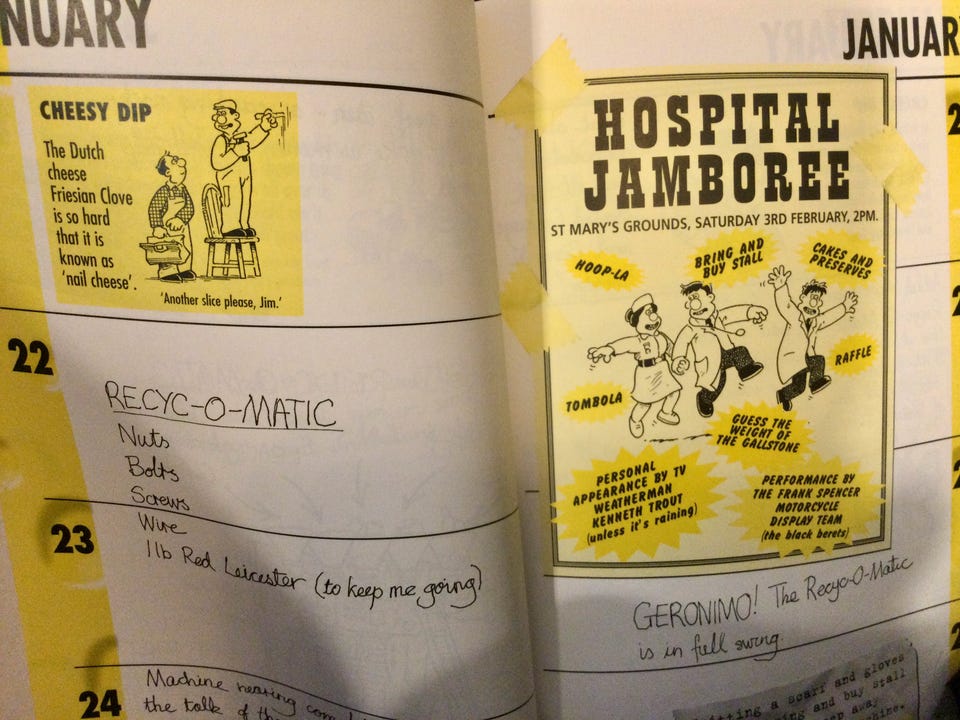 NUARY
CHEESY DIP
The Dutch
cheese
Friesian Clove
is so hard
that it is
known as
'nail cheese'.
'Another slice please, Jim.'
22
RECYC-O-MATIC
Nuts
Bolts
Screws
23
Wire
1lb Red Leicester (to keep me going)
24
Machine nearing
the talk of
JANUAR
HOSPITAL
JAMBOREE
ST MARY'S GROUNDS, SATURDAY 3RD FEBRUARY, 2PM.
HOOP-LA
BRING AND
BUY STALL
CAKES AND
PRESERVES
RAFFLE
TOMBOLA
GUESS THE
WEIGHT OF
THE GALLSTONE
PERSONAL
APPEARANCE BY TV
WEATHERMAN
KENNETH TROUT
(unless it's raining)
PERFORMANCE BY
THE FRANK SPENCER
MOTORCYCLE
DISPLAY TEAM
(the black berets)
GERONIMO! The Recyc-O-Matic
is in full swing.
a scarf and gloves
and buy stall
away